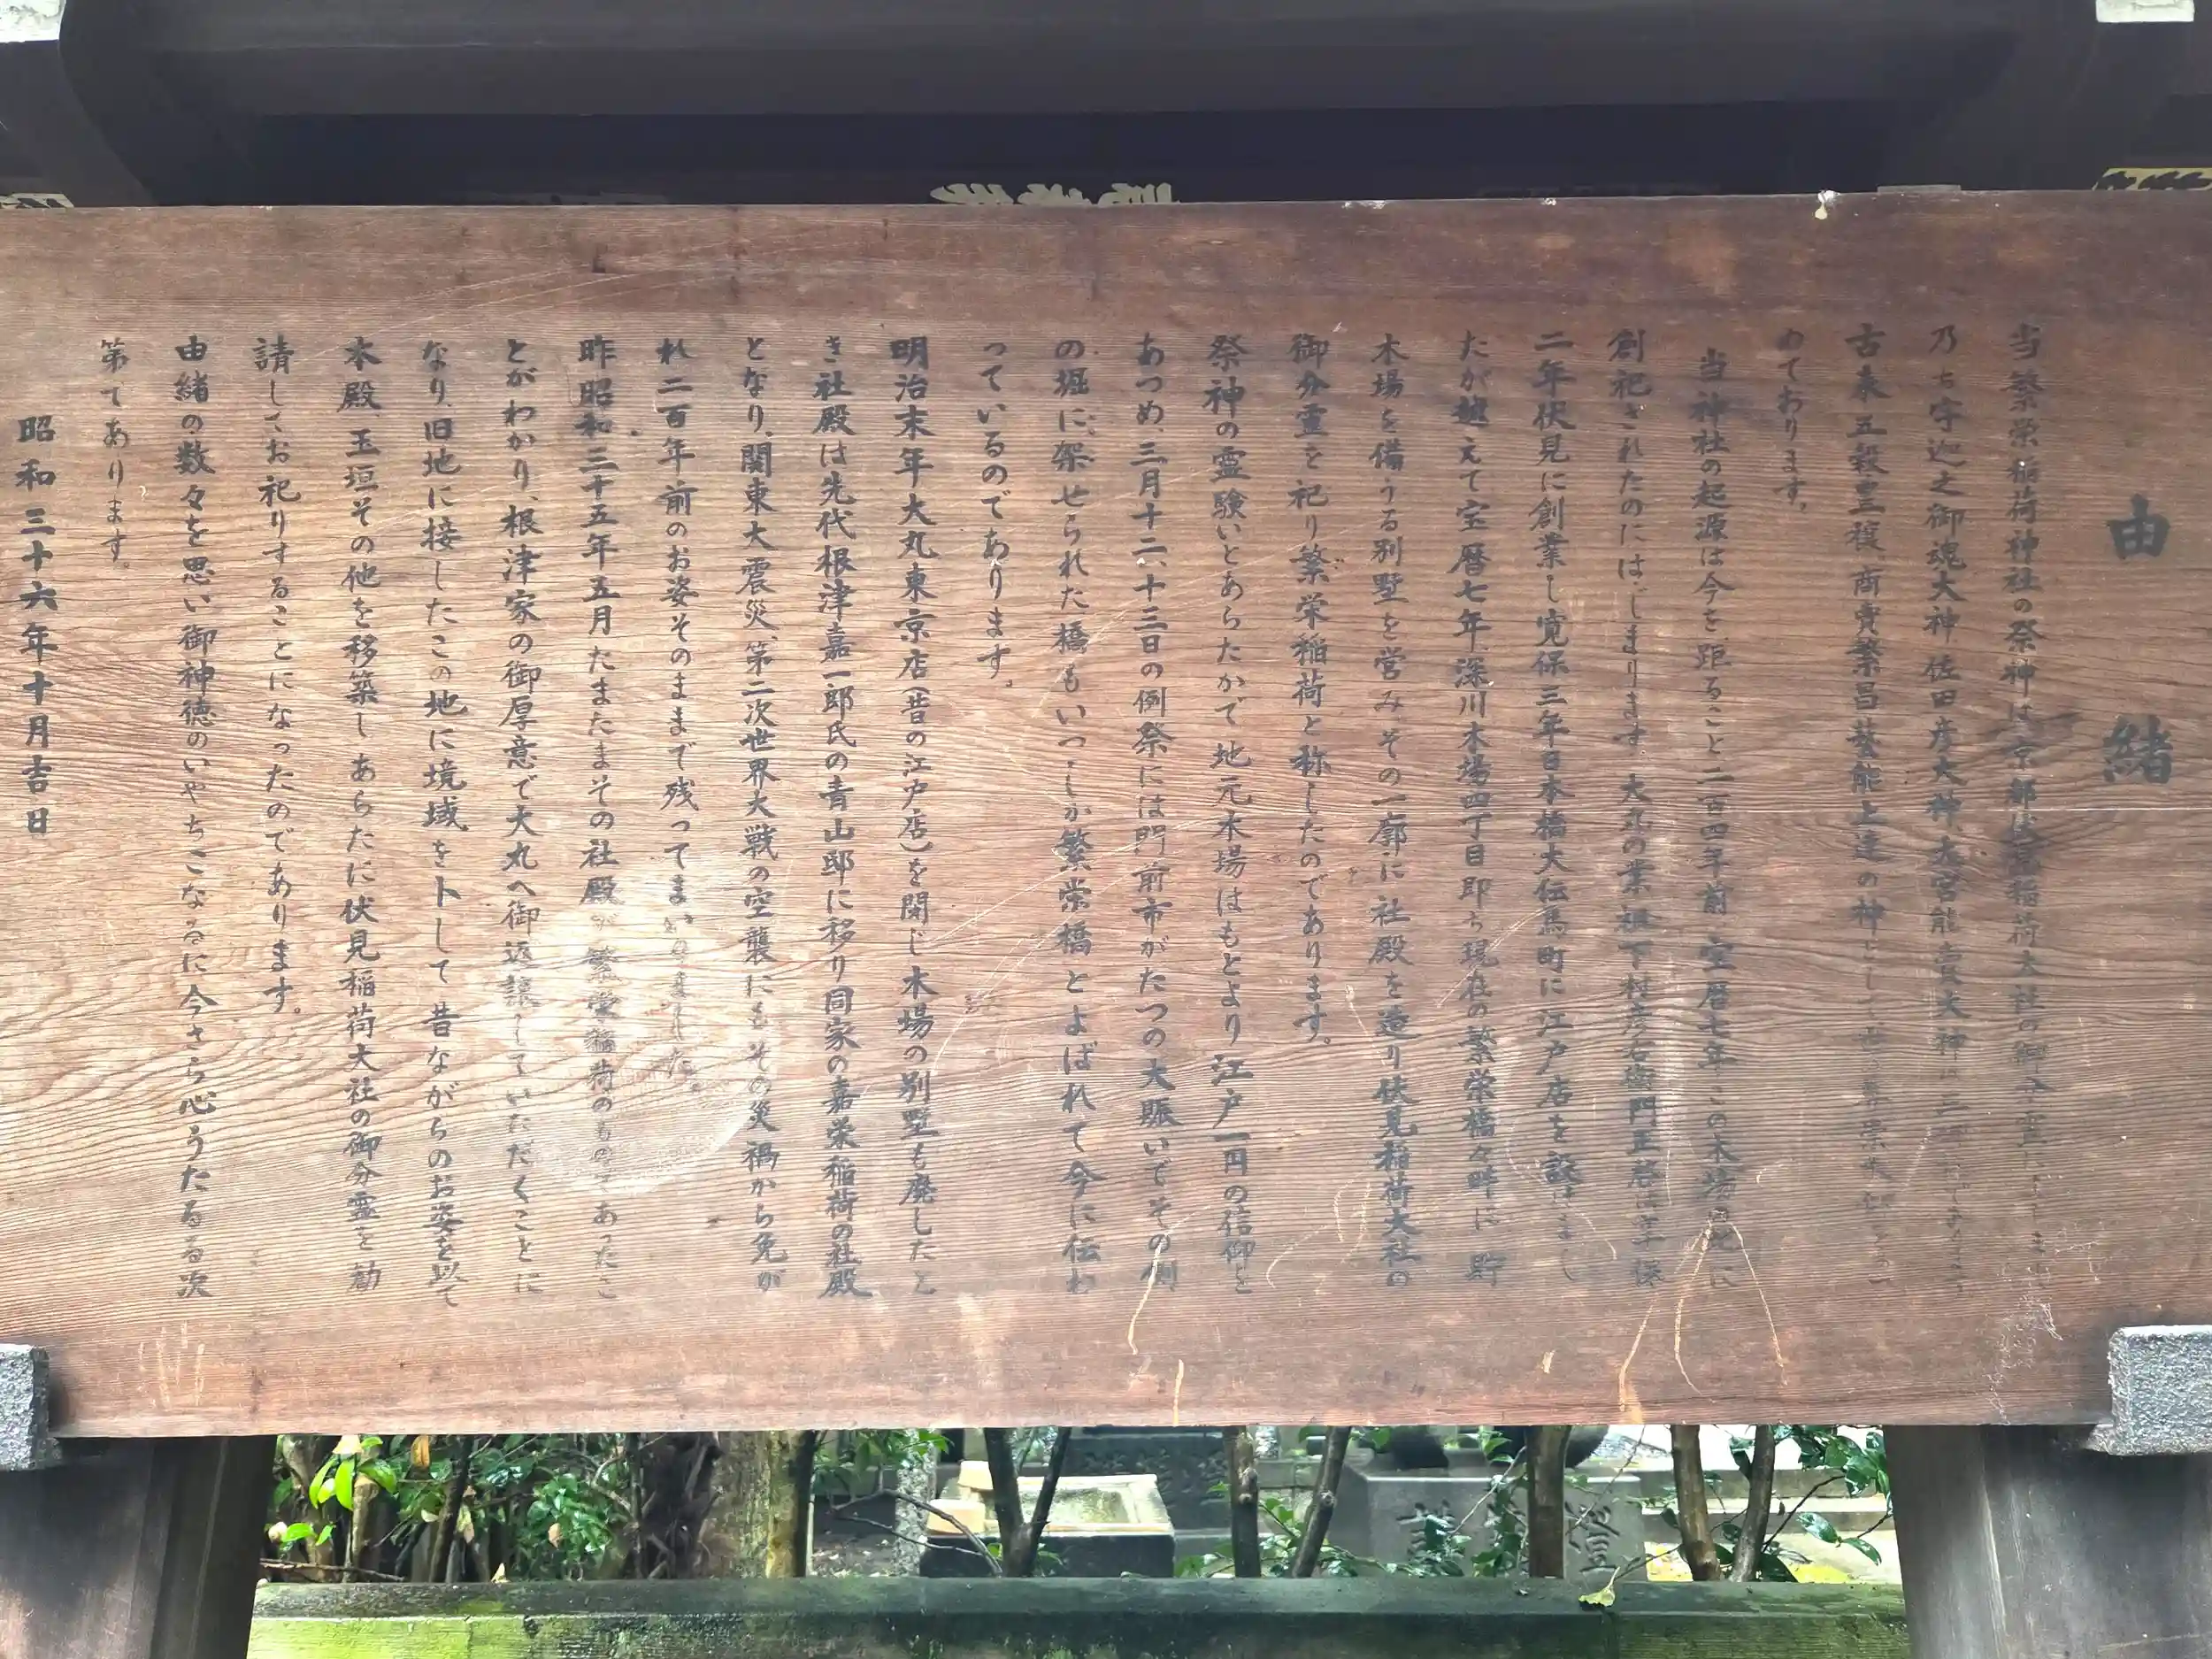 由緒
当繁栄稲荷神社の祭神は京都伏見稲荷大社の御分霊
乃ち宇迦之御魂大神 佐田彦大神 大宮能売大神
古来五穀豊穣 商売繁昌 芸能上達の神として
めております。
当神社の起源は今を距ること二百四年前、宝暦七年この木場の地に
創祀されたのにはじまります。大丸の業祖下村彦右衛門正啓は享保
二年伏見に創業し寛保三年日本橋大伝馬町に江戸店を設けまし
たが越えて宝暦七年、深川木場四丁目即ち現在の繁栄橋々畔に貯
木場を備うる別墅を営み、その一廓に社殿を造り伏見稲荷大社の
御分霊を祀り繁栄稲荷と称したのであります。
祭神の霊験いとあらたかで地元木場はもとより江戸一円の信仰を
あつめ、三月十二、十三日の例祭には門前市がたつの大賑いでその側
の堀に架せられた橋もいつしか繁栄橋とよばれて今に伝わ
っているのであります。
明治末年大丸東京店(昔の江戸店)を閉じ木場の別墅も廃したと
き社殿は先代根津嘉一郎氏の青山邸に移り同家の嘉栄稲荷の社殿
となり、関東大震災、第二次世界大戦の空襲にもその災禍から免が
れ二百年前のお姿そのままで残ってまいりました。
昨昭和三十五年五月たまたまその社殿が繁栄稲荷のものであったこ
とがわかり、根津家の御厚意で大丸へ御返譲していただくことに
なり、旧地に接したこの地に境域を卜して昔ながらのお姿を以て
本殿、玉垣その他を移築し あらたに伏見稲荷大社の御分霊を勧
請してお祀りすることになったのであります。
由緒の数々を思い御神徳のいやちこなるに今さら心うたるる次
第であります。
昭和三十六年十月吉日